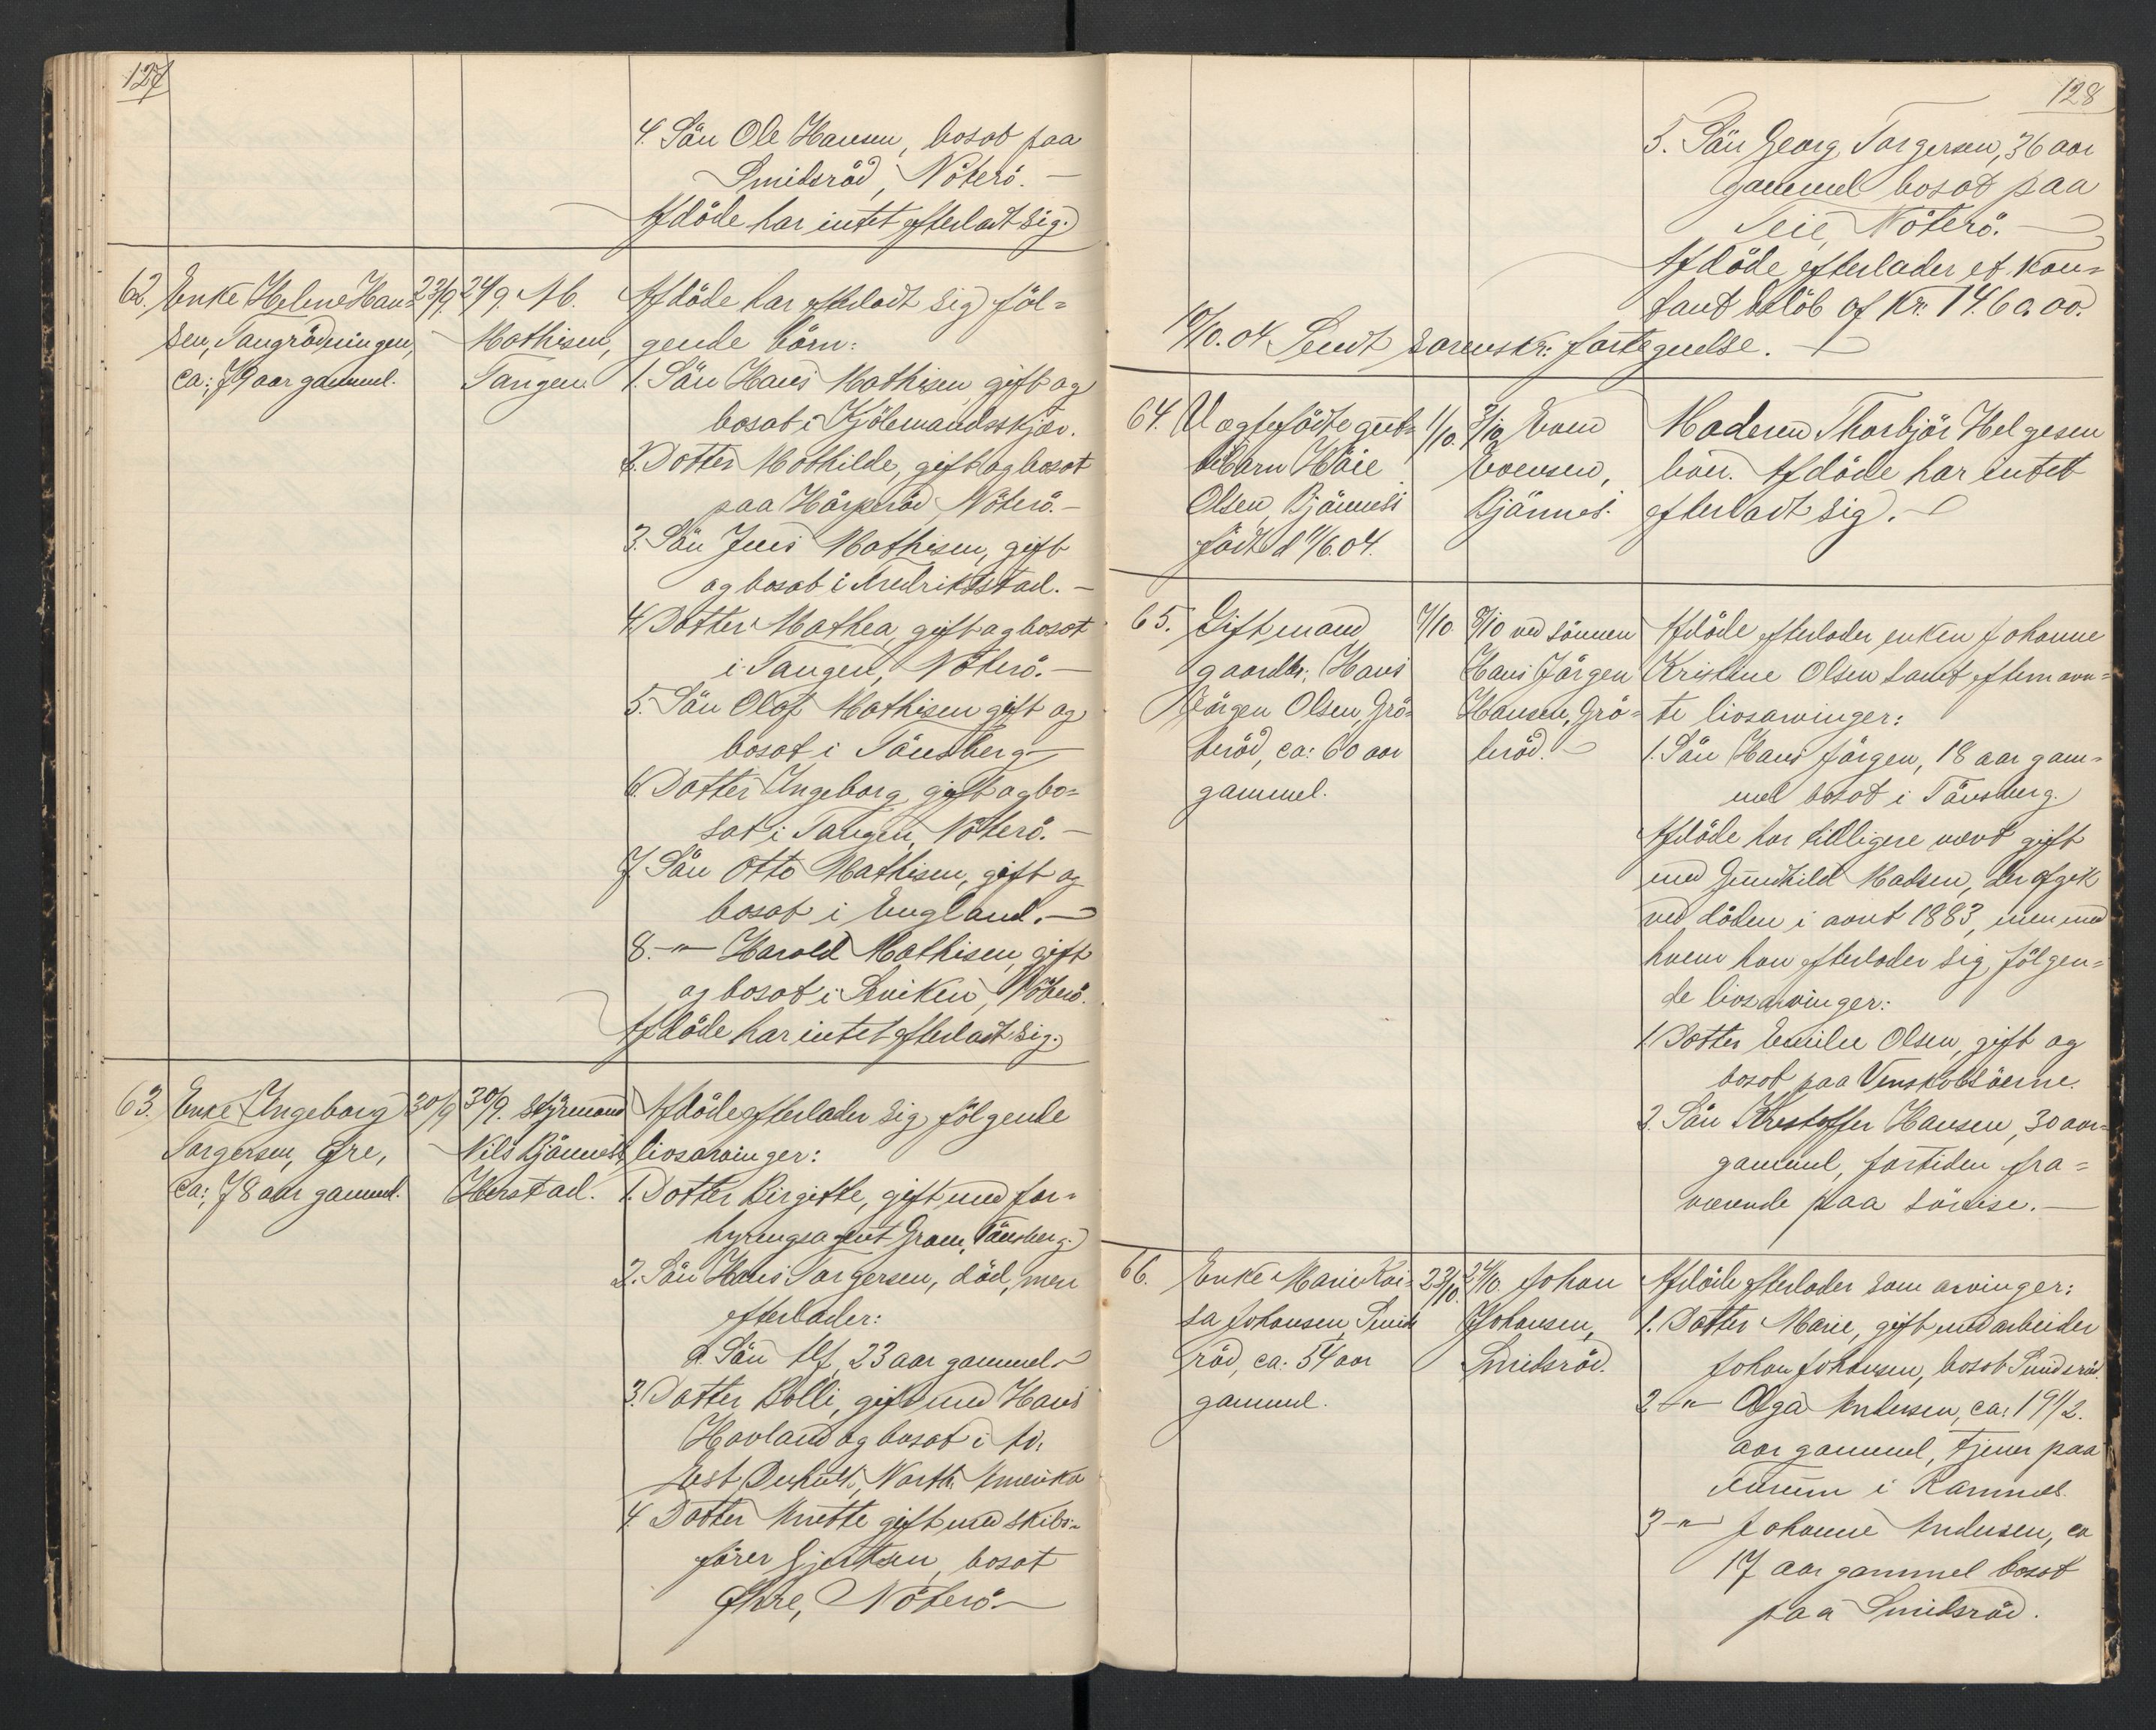 127
4. Sön Ole Hansen, bosat paa
Smidsröd, Nöterö. —
Afdöde har intet efterladt sig.
62. Enke Helene Han-
sen, Tangrödningen,
ca: 79 aar gammel.
23/9
24/9. M.
Mathisen,
Tangen
Afdöde har efterladt sig föl=
gende börn:
1. Sön Hans Mathisen gift og
bosat i Kjöbmandsskjær.
2. Datter Mathilde, gift og bosat
paa Hårperöd, Nöterö. —
3. Sön Jens Mathisen, gift
og bosat i Fredrikstad. —
4. Datter Mathea, gift og bosat
i Tangen, Nöterö. —
5. Sön Olaf Mathisen gift og
bosat i Tönsberg —
6. Datter Ingeborg gift og bo=
sat i Tangen, Nöterö. —
7. Sön Otto Mathisen, gift og
bosat i England. —
8. —"— Harald Mathisen, gift
og bosat i Leviken, Nöterö.
Afdöde har intet efterladt sig.
63. Enke Ingeborg
Torgersen, Øre,
ca: 78 aar gammel.
30/9
30/9. Styrmand
Nils Bjönness,
Herstad.
Afdöde efterlader sig fölgende
livsarvinger:
1. Datter Birgitte, gift med for-
hyringsagent Gram, Tönsberg.
2. Sön Hans Torgersen, död, men
efterlader:
a. Sön Alf, 23 aar gammel
3. Datter Bolli, gift med Hans
Havland og bosat i
West Duluth, North Amerika
4. Datter Anette gift med skibs-
förer Gjertsen, bosat
Øhre, Nöterö —
128
5. Sön Georg Torgersen, 36 aar
gammel bosat paa
Teie, Nöterö. —
Afdöde efterlader et kon-
tant belöb af Kr. 1460.00.
10/10.04 Sendt sorenskr: fortegnelse. —
64. Uægtefödte gut-
tebarn Håie
Olsen, Bjönness
födt d 11/6.04.
1/10.
3/10 Even
Evensen,
Bjönnes.
Moderen Thorbjör Helgesen
lever. Afdöde har intet
efterladt sig. —
65. Gift mand
gaardbr. Hans
Jörgen Olsen, Grö-
teröd, ca: 60 aar
gammel.
7/10.
8/10 ved sönnen
Hans Jörgen
Hansen, Grö-
teröd. —
Afdöde efterlader enken Johanne
Kristine Olsen samt eftern avn-
te livsarvinger:
1. Sön Hans Jörgen, 18 aar gam-
mel bosat i Tönsberg.
Afdöde har tidligere vært gift
med Gundhild Madsen, der afgik
ved döden i aaret 1883, men med
hvem han efterlader sig fölgen=
de livsarvinger:
1. Datter Emilie Olsen, gift og
bosat paa Venskobsöerne.
2. Sön Kristoffer Hansen, 30 aar
gammel, fortiden fra=
værende paa söreise. —
66. Enke Marie Kai-
sa Johansen, Smids
röd, ca: 54 aar
gammel.
23/10.
24/10 Johan
Johansen,
Smidsröd.
Afdöde efterlader som arvinger:
1. Datter Marie, gift med arbeider
Johan Johansen, bosat Smidsröd.
2 —"— Olga Andersen, ca: 19 1/2.
aar gammel, tjener paa
i Ramnes.
3 —"— Johanne Andersen, ca
17 aar gammel bosat
paa Smidsröd.